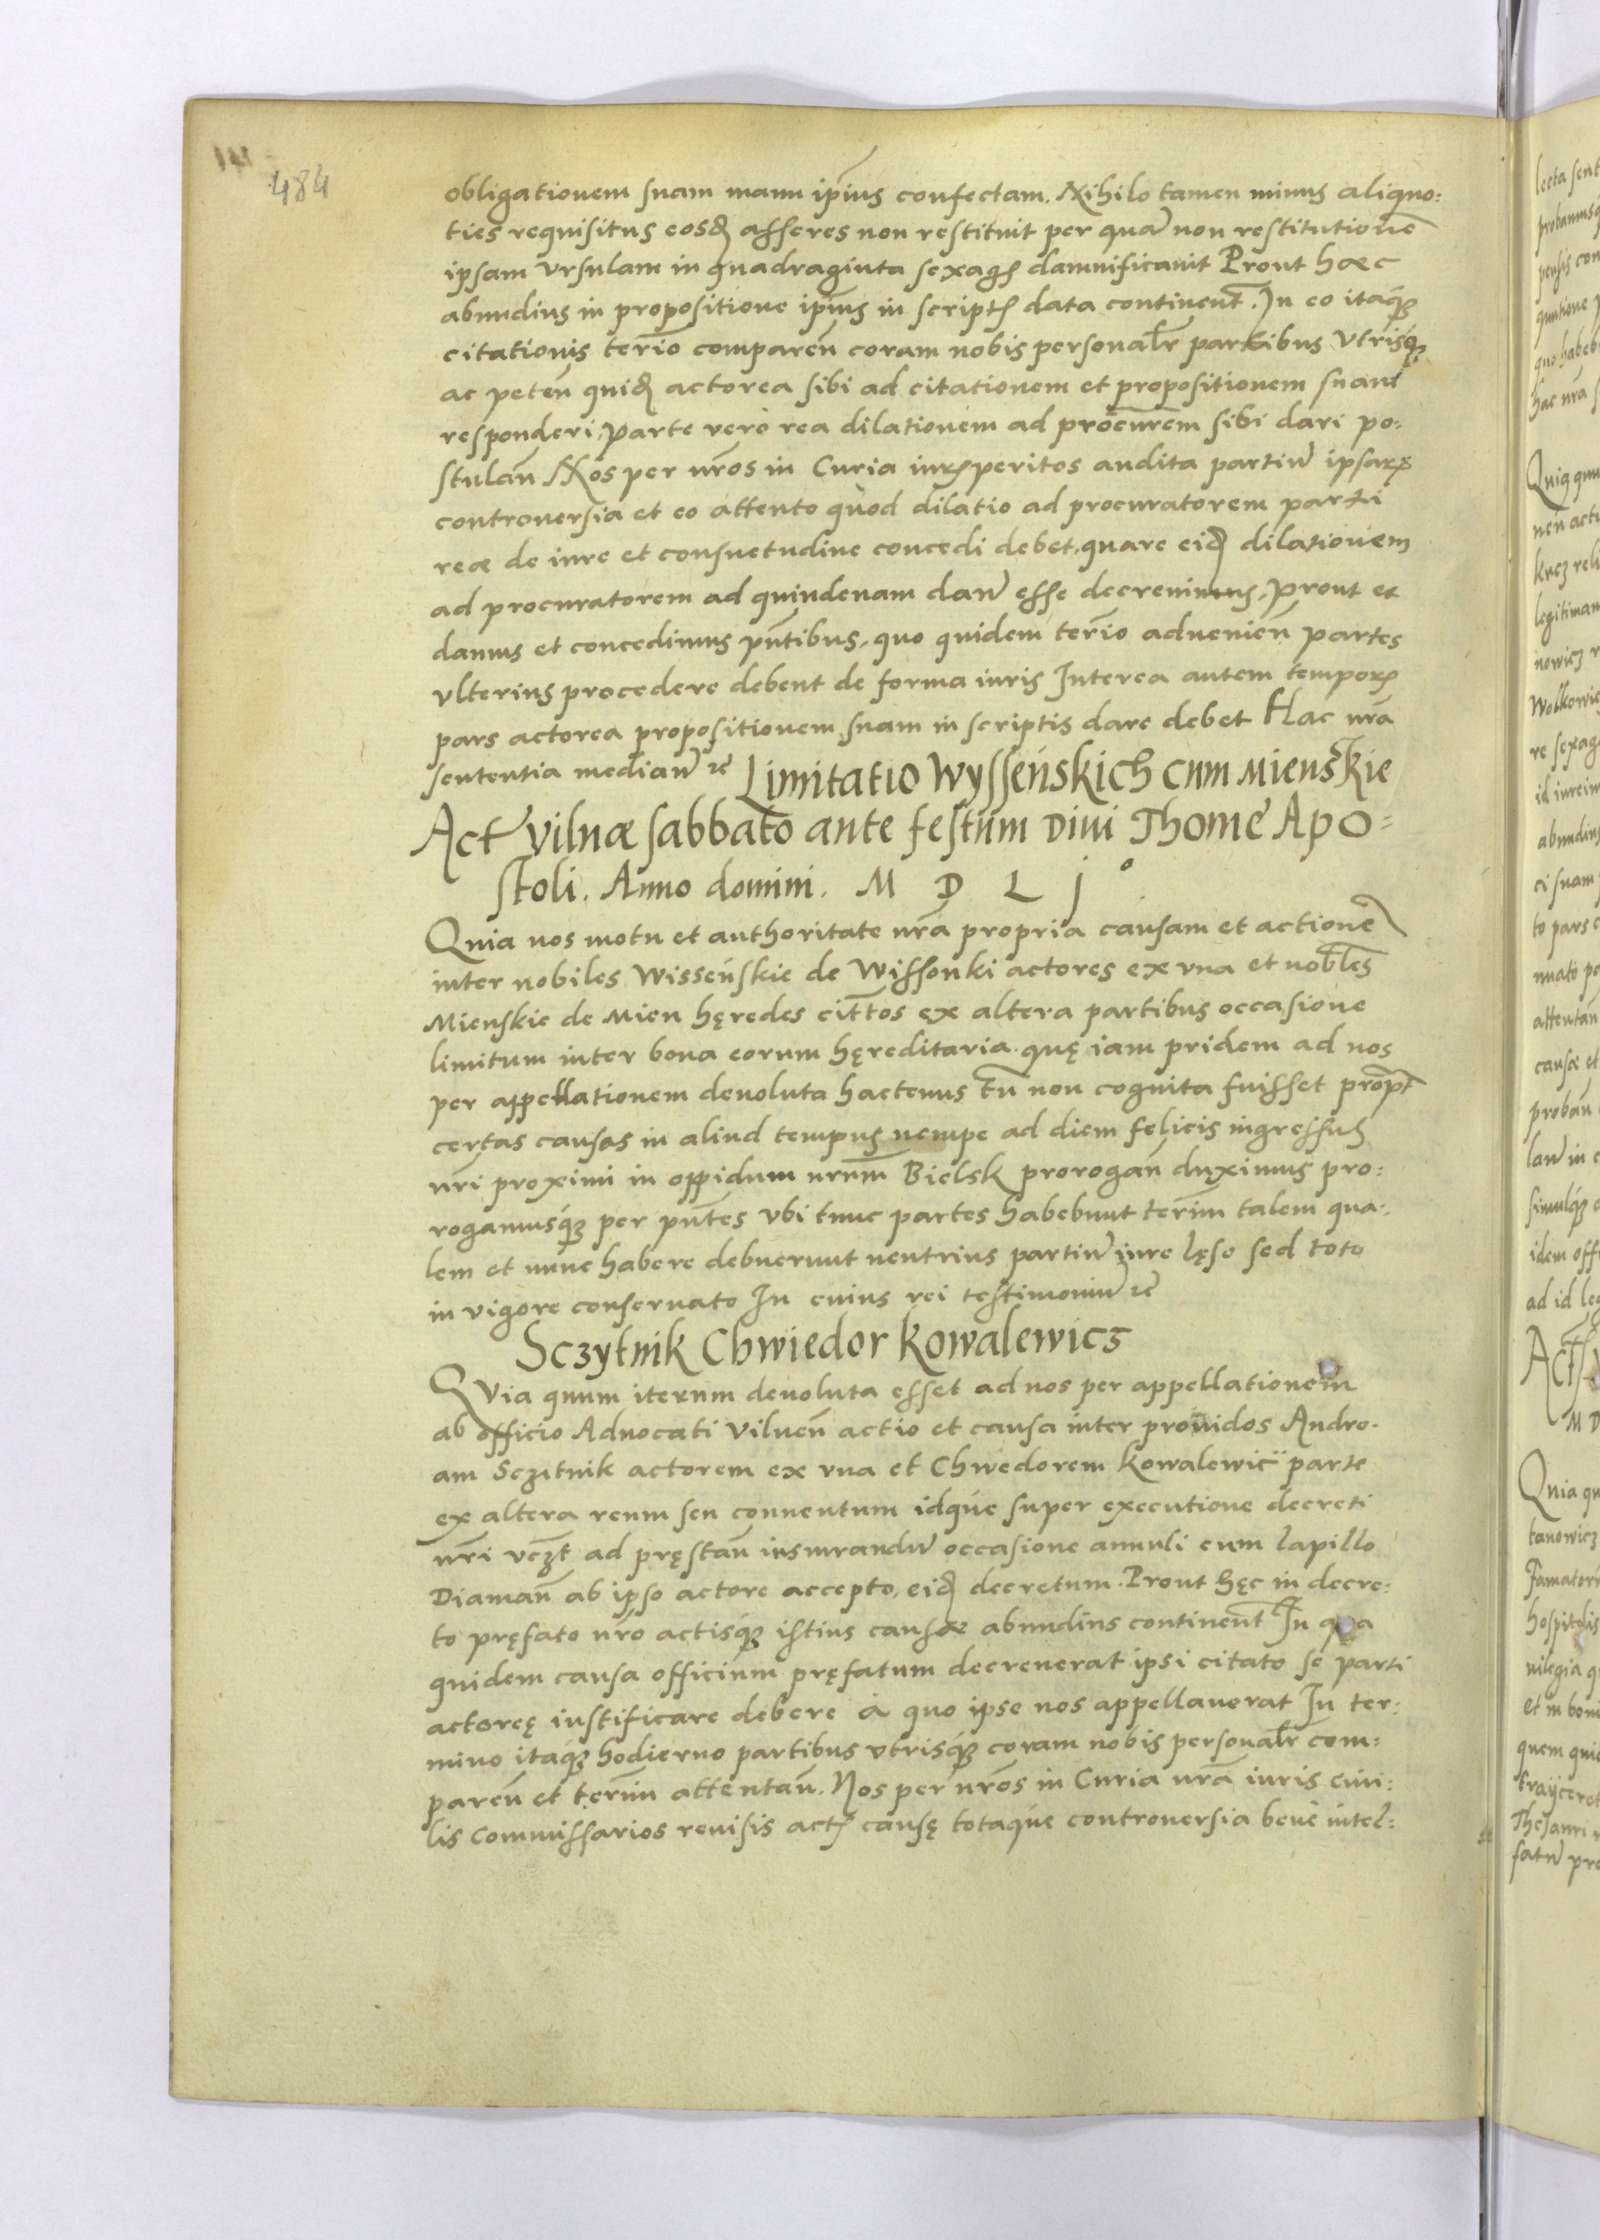 484
obligationem suam manu ipīus confectam. Nihilo tamen minus aliquo:
ties requisitus eosđ asseres non restituit per quā non restitutionē
ipsam Vrsulam in quadraginta sexagȩ damnificauit Prout hæc
abundius in propositione ipīus in scriptȩ data continent̄. In eo itaqȝ
citationis terīo comparen̄ coram nobis personalr̄ partibus Vtrisqȝ
ac peten̄ quiđ actorea sibi ad citationem et propositionem suam
responderi, Parte vero rea dilationem ad procūrem sibi dari po:
stulan̄ Nos per nr̄os in Curia iurȩperitos audita partiū ipsarȩ
controuersia et eo attento quod dilatio ad procuratorem parti
reæ de iure et consuetudine concedi debet, quare eiđ dilationem
ad procuratorem ad quindenam dan̄ esse decreuimus, Prout et
damus et concedimus pn̄tibus, quo quidem terīo aduenien̄ partes
vlterius procedere debent de forma iuris Interea autem temporȩ
pars actorea propositionem suam in scriptis dare debet Hac nr̄a
sententia median̄ &c Limitatio Wysseńskich cum Mieńskie
Act̄ vilnæ sabbato ante festum Diui Thome Apo=
stoli. Anno domini. M D L j°
Quia nos motu et authoritate nr̄a propria causam et actionē
inter nobiles Wisseńskie de Wissonki actores ex vna et nobl̄es
Mienskie de Mien hęredes citt̄os ex altera partibus occasione
limitum inter bona eorum hęreditaria. quę iam pridem ad nos
per appellationem deuoluta hactenus tn̄ non cognita fuisset propt̄
certas causas in aliud tempus nempe ad diem felicis ingressus
nr̄i proximi in oppidum nr̄um Bielsk prorogan̄ duximus pro:
rogamusqȝ per pn̄tes vbi tunc partes habebunt terīm talem qua:
lem et nunc habere debuerunt neutrius partiū iure lęso sed toto
in vigore conseruato In cuius rei testimoniū &c
Sczytnik Chwiedor Kowalewicz
QVia quum iterum deuoluta esset ad nos per appellationem
ab officio Aduocati Vilnen̄ actio et causa inter prouidos Andre:
am Sczitnik actorem ex vna et Chwedorem Kowalewic̈ parte
ex altera reum seu conuentum idque super executione decreti
nr̄i vcȝt ad pręstan̄ iusiurandū occasione annuli cum lapillo
Diaman̄ ab ipso actore accepto, eiđ decretum. Prout hęc in decre:
to pręfato nr̄o actisqȝ istius causæ abundius continent̄ In qua
quidem causa officium pręfatum decreuerat ipsi citato se parti
actoreę iustificare debere à quo ipse nos appellauerat In ter:
mino itaqȝ hodierno partibus vtrisqȝ coram nobis personalr̄ com:
paren̄ et terīm attentan̄. Nos per nr̄os in Curia nr̄a iuris ciui:
lis Commissarios reuisis actȩ causę totaque controuersia bene intel: